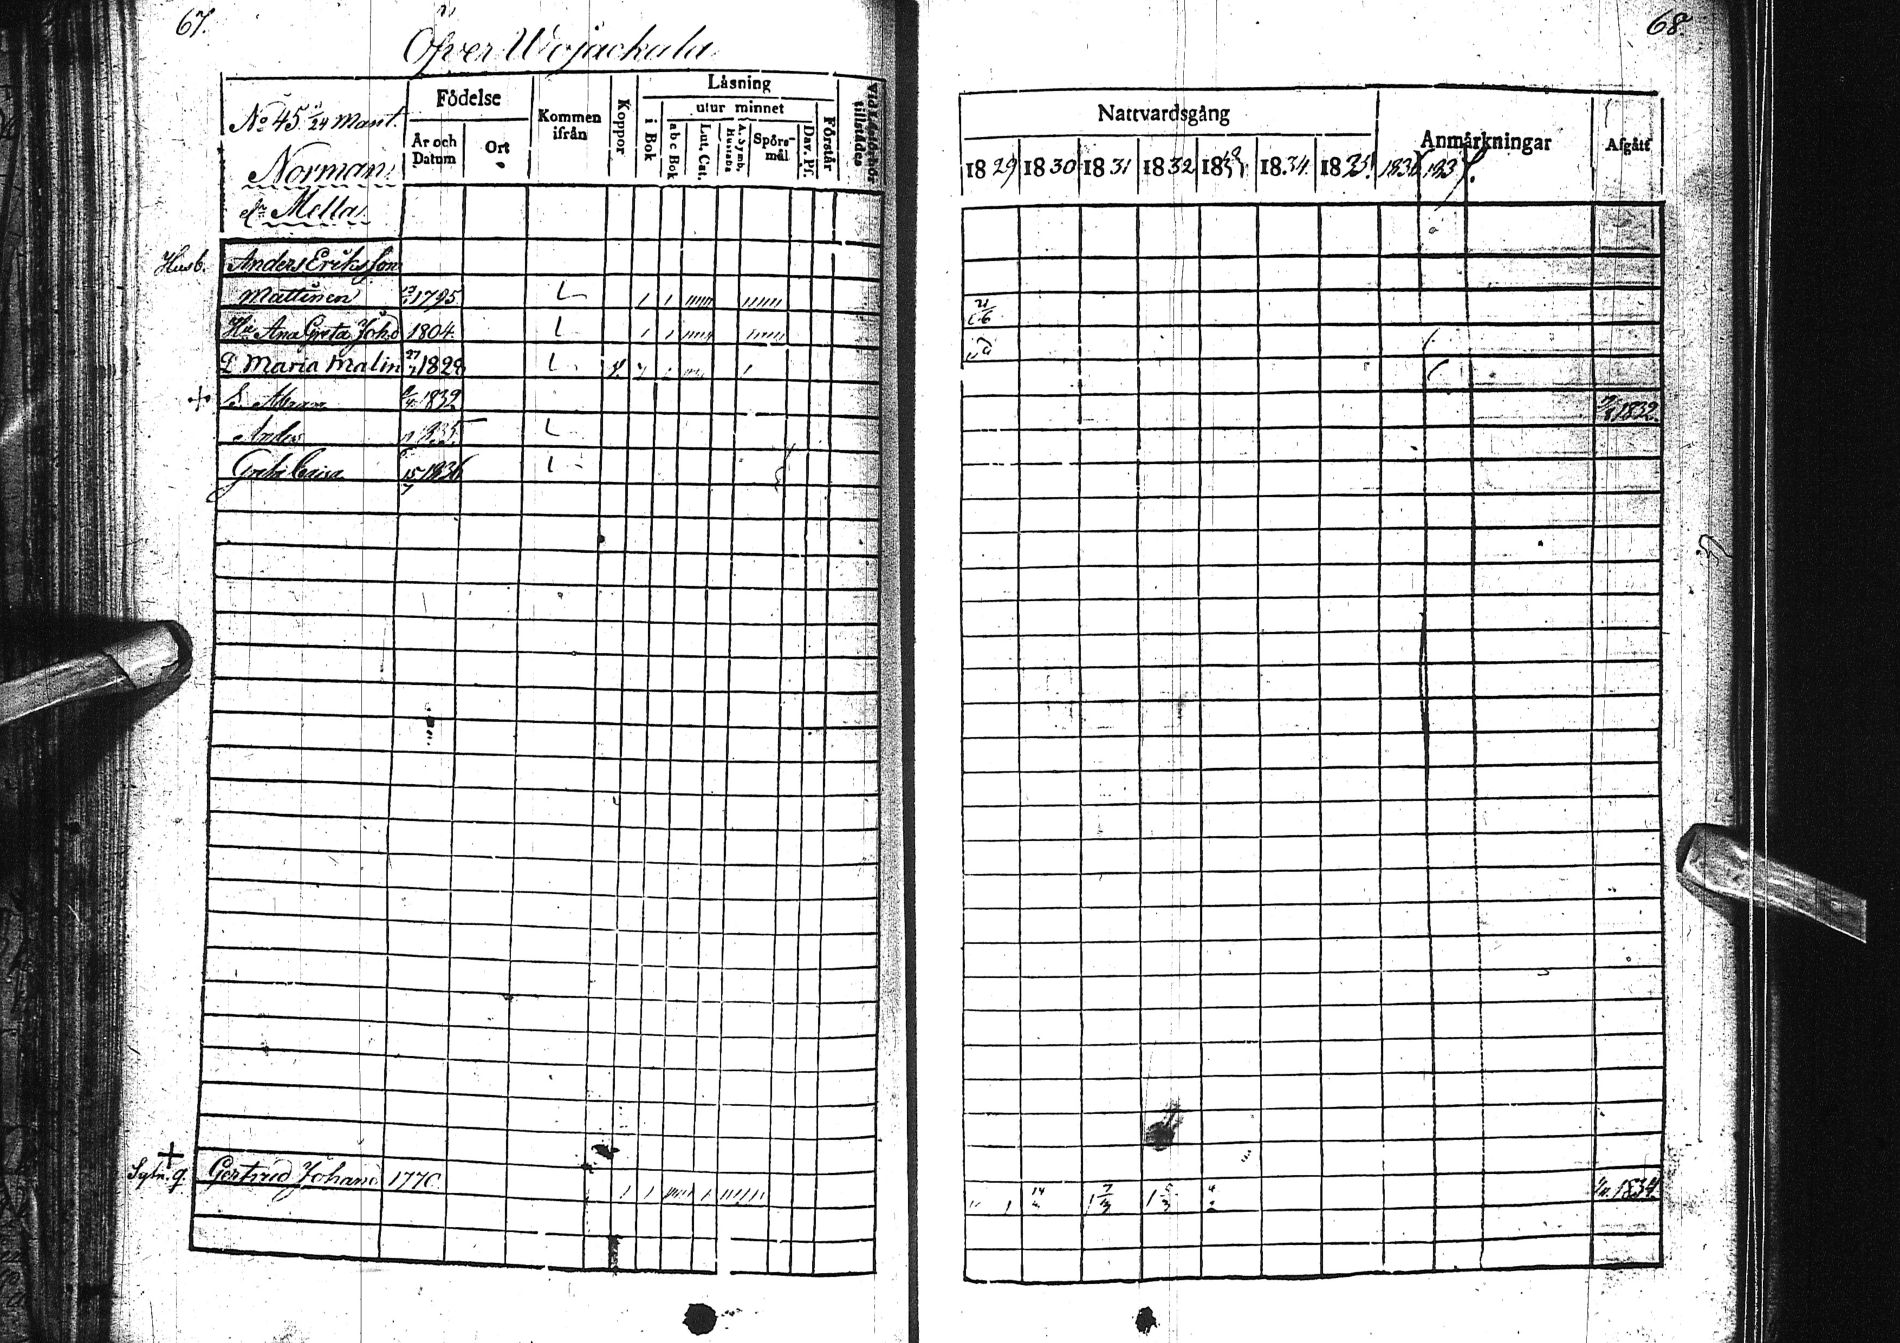 67.
Öfver Wojackala
No 45 1/24 Mant.
Norman
Mella
Födelse
År och Datum
Ort
Kommen ifrån
Koppor
Låsning
i Bok
utur minnet
a b c Bok
Lut. Cat.
A. Symb. Hustafla
Spörs-mål
Dav. Ps.
Förstår
tillstådes
Husb. Anders Eriksson
Mattinen 1795 L
Hu Ana Greta Joh.d 1804. L
D Maria Malin 27 1828 L
+ S. Abram 1832
Anders 1835 L
Greta Caisa 15/7 1836 L
+
Gertrud Johansd 1770.
68.
Nattvardsgång
1829 1830 1831 1832 1833 1834. 1835. 1836 1837.
Anmärkningar
Afgått
1832.
14
1 7/3
1 5/3
4/2
1834